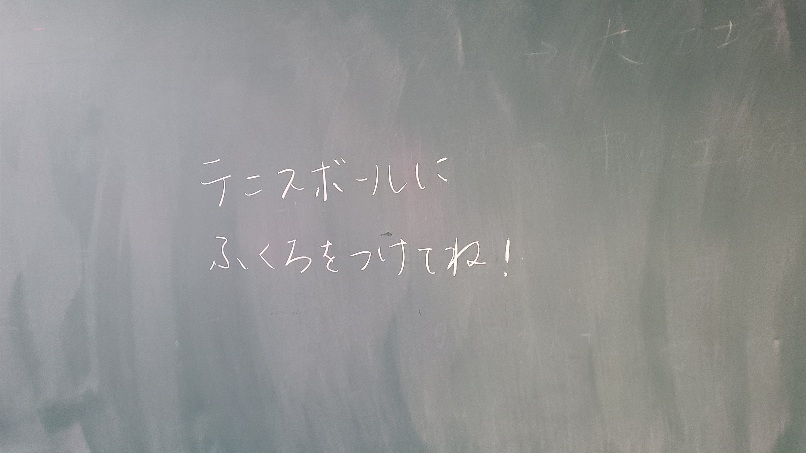 テニスボールに
ふくろをつけてね!